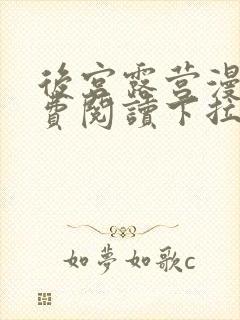 後宮露营漫
費閱讀下拉
如夢如歌c